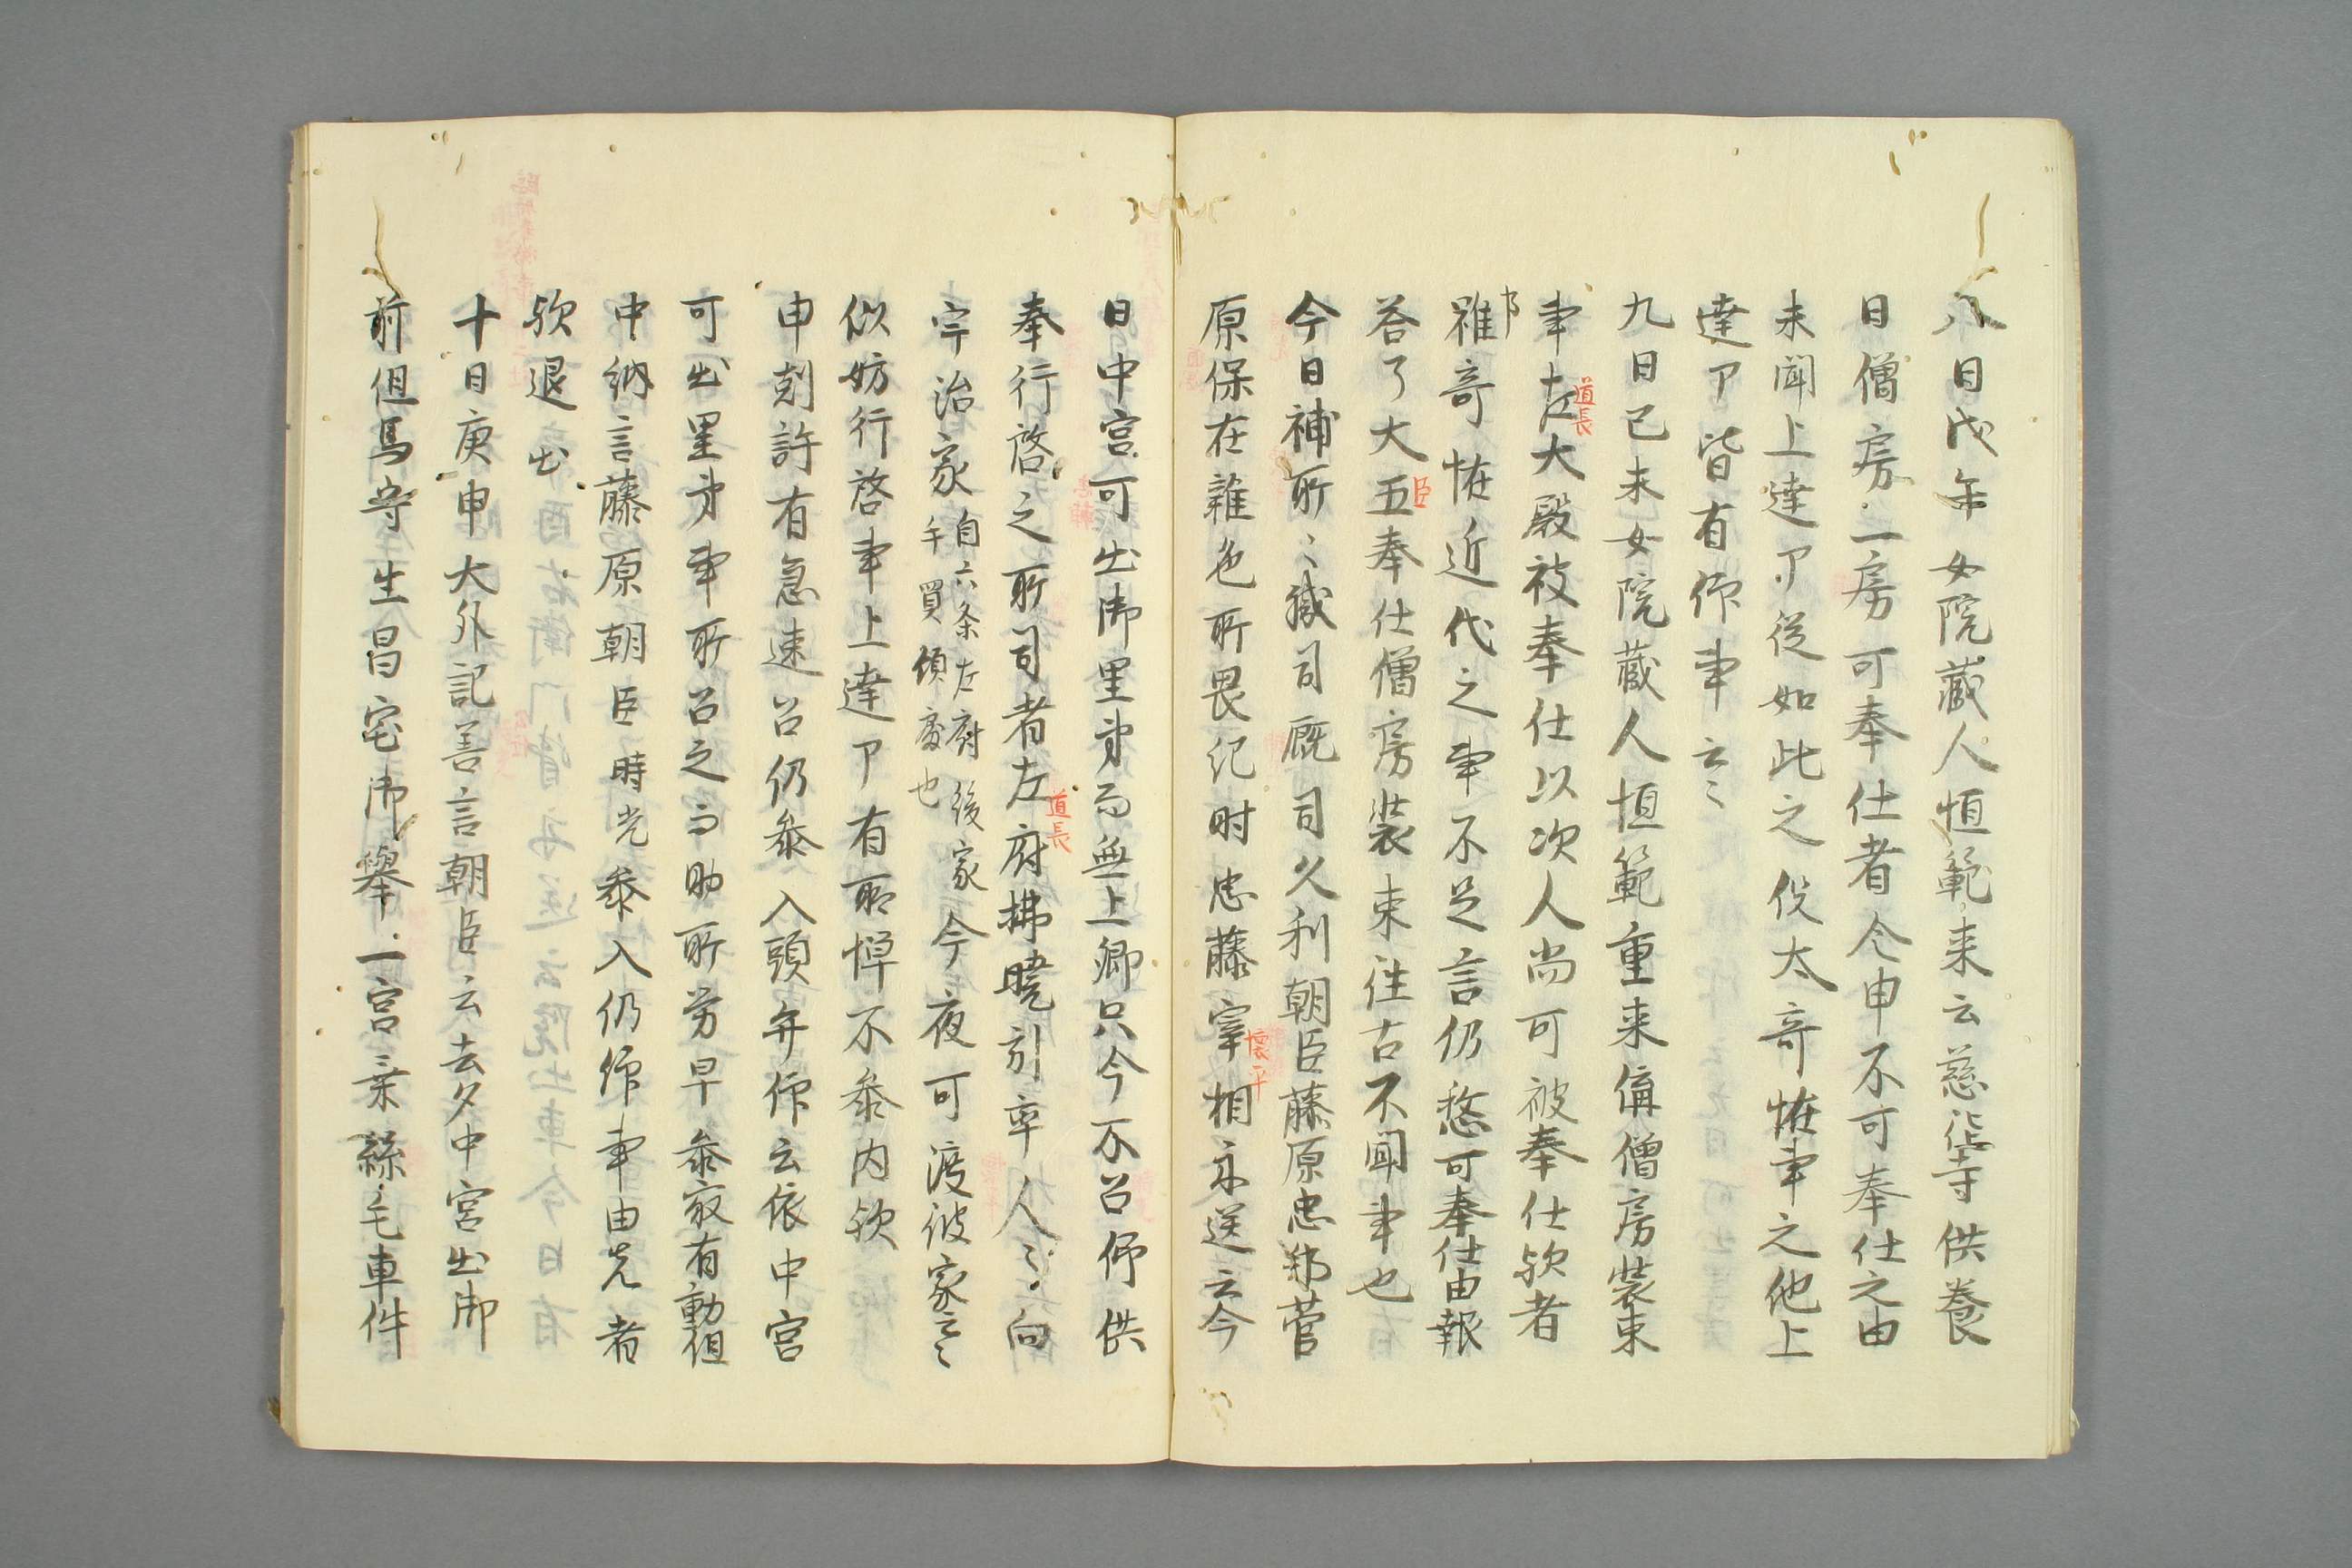 八日戊午女院蔵人恒範来云慈徳寺供養
日僧房一房可奉仕者令申不可奉仕之由
未聞上達了従如此之役太奇恠事之他上
達了皆有仰事云〻
九日己未女院蔵人恒範重来偁僧房装束
事左大殿被奉仕以次人尚可被奉仕欤者
道長
雖奇恠近代之事不足言仍愁可奉仕由報
答了大臣奉仕僧房装束往古不聞事也
今日補所〻職司厩司久利朝臣藤原忠邦菅
原保在雑色所畏紀时忠藤宰相示送云今
懐平
日中宮可出御里第而無上卿只今不召仰供
奉行啓之所司者左府拂暁引率人〻向
道長
宇治家自六条左府後家手買領處也今夜可渡彼家云〻
似妨行啓事上達了有所惮不参内欤
申剋許有急速召仍参入頭弁仰云依中宮
可出里第事所召之而助所労早参最有動但
中納言藤原朝臣時光参入仍仰事由先者
欤退出
十日庚申大外記善言朝臣云去夕中宮出御
前但馬守生昌宅御輿一宮乗絲毛車件